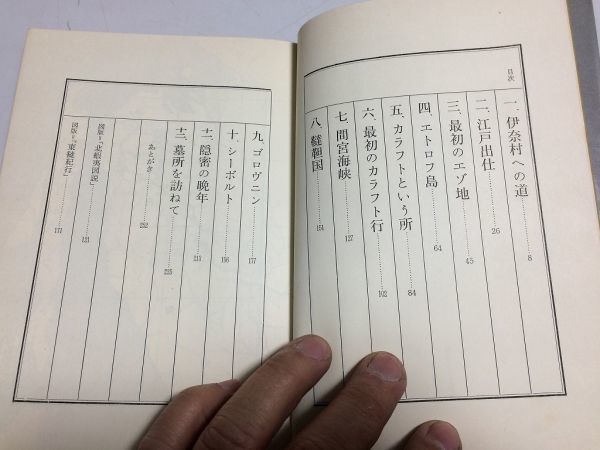 目次
一、伊奈村への道 8
二、江戸出仕 26
三、最初のエゾ地 45
四、エトロフ島 64
五、カラフトという所 84
六、最初のカラフト行 102
七、間宮海峡 127
八、韃靼国 151
九、ゴロヴニン 177
十、シーボルト 196
十一、隠密の晩年 211
十二、墓所を訪ねて 225
あとがき 232
図版Ⅰ「北蝦夷図説」 121
図版Ⅱ「東韃紀行」 171